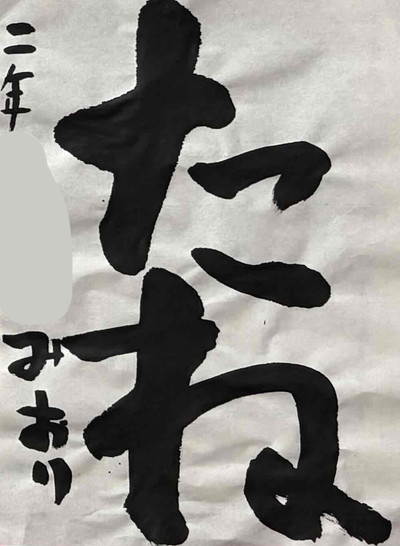 たね
二年
みおり